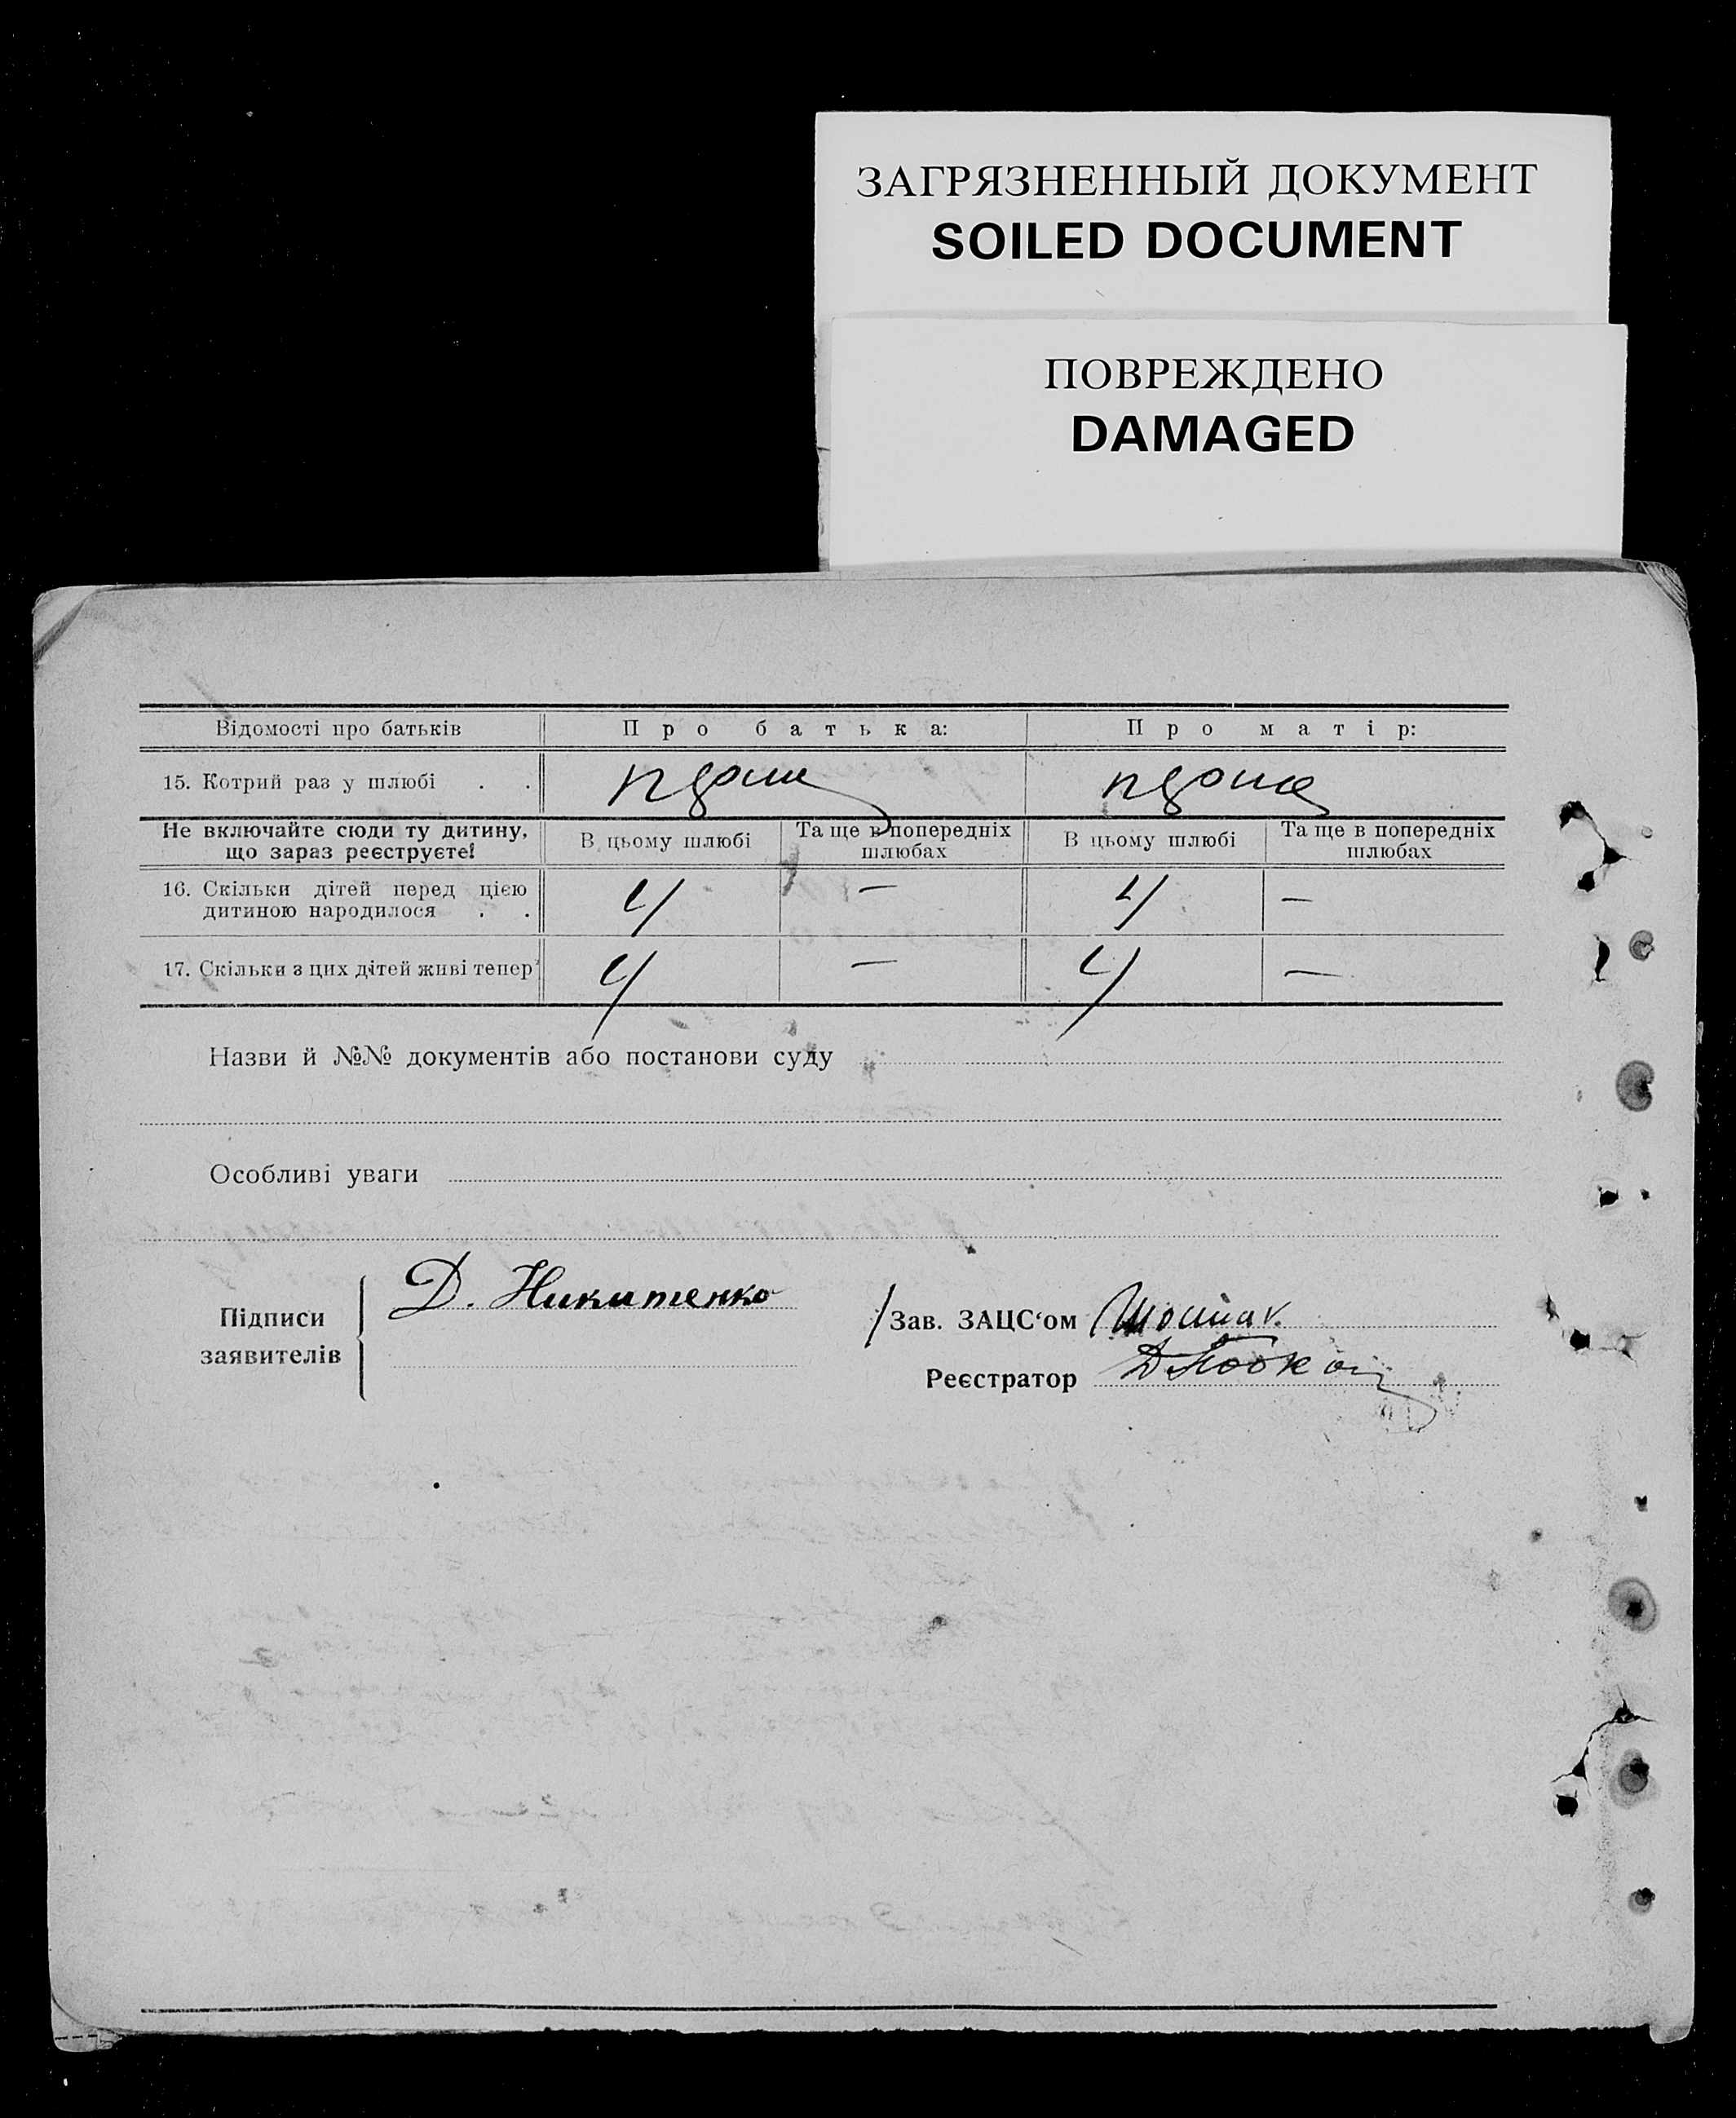 ЗАГРЯЗНЕННЫЙ ДОКУМЕНТ
SOILED DOCUMENT
ПОВРЕЖДЕНО
DAMAGED
Відомості про батьків Про батька: Про матір:
15. Котрий раз у шлюбі . .
Не включайте сюди ту дитину, що зараз реєструєте! В цьому шлюбі Та ще в попередніх шлюбах В цьому шлюбі Та ще в попередніх шлюбах
16. Скільки дітей перед цією дитиною народилося . . 4 — 4 —
17. Скільки з цих дітей живі тепер 4 — 4 —
Назви й №№ документів або постанови суду
Особливі уваги
Підписи заявителів Д. Никитенко
/Зав. ЗАЦС‘ом
Реєстратор